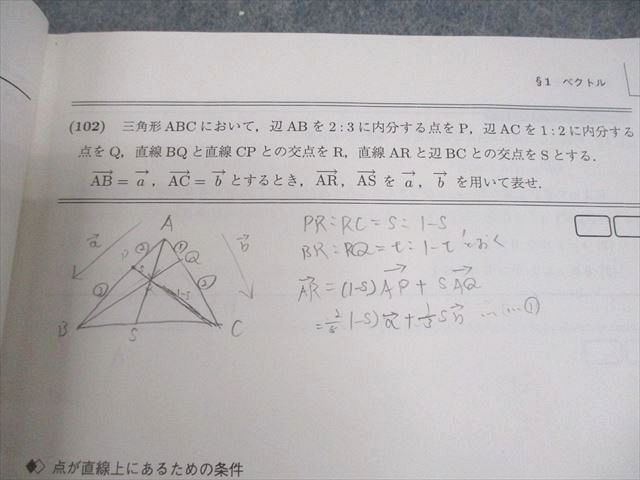 §1 ベクトル
(102) 三角形 ABC において，辺 AB を 2 : 3 に内分する点を P，辺 AC を 1 : 2 に内分する
点を Q，直線 BQ と直線 CP との交点を R，直線 AR と辺 BC との交点を S とする．
$\overrightarrow{AB}$ = $\vec{a}$ ，$\overrightarrow{AC}$ = $\vec{b}$ とするとき，$\overrightarrow{AR}$，$\overrightarrow{AS}$ を $\vec{a}$ ，$\vec{b}$ を用いて表せ．
A
$\vec{a}$
$\vec{b}$
② ①
P Q
③ ②
s
1-s
B S C
PR:RC=s:1-s
BR:RQ=t:1-tとおく
$\overrightarrow{AR}$=(1-s)$\overrightarrow{AP}$+s$\overrightarrow{AQ}$
=$\frac{2}{5}$(1-s)$\vec{a}$+$\frac{1}{3}$s$\vec{b}$ ……①
点が直線上にあるための条件